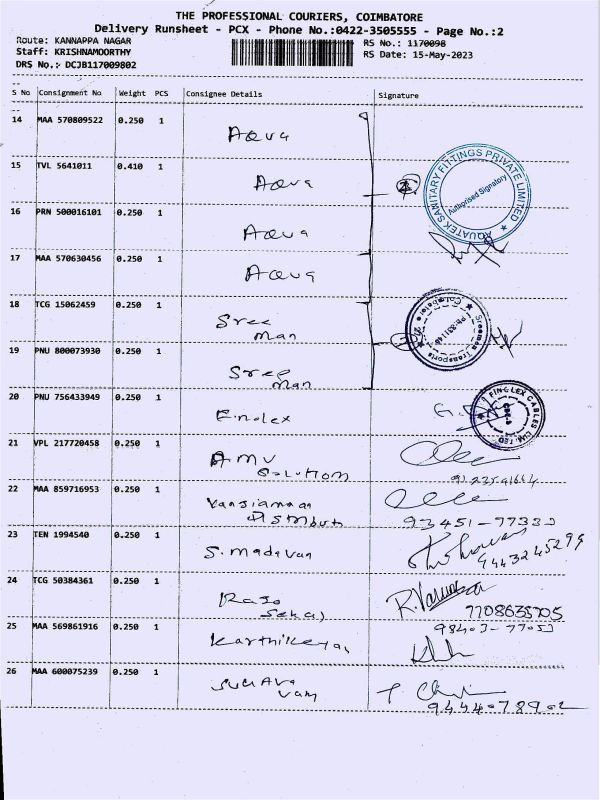 THE PROFESSIONAL COURIERS, COIMBATORE
Delivery Runsheet - PCX - Phone No.:0422-3505555 - Page No.:2
Route: KANNAPPA NAGAR
Staff: KRISHNAMOORTHY
DRS No.: DCJB117009802
RS No.: 1170098
RS Date: 15-May-2023
S No Consignment No Weight PCS Consignee Details Signature
14 MAA 570809522 0.250 1 Aqua
15 TVL 5641011 0.410 1 Aqua
AQUATEK SANITARY FITTINGS PRIVATE LIMITED
Authorised Signatory
16 PRN 500016101 0.250 1 Aqua
17 MAA 570630456 0.250 1 Aqua
18 TCG 15062459 0.250 1 Sree
man
Sreeman Transports
Coimbatore
19 PNU 800073930 0.250 1 Sree
man
20 PNU 756433949 0.250 1 Finolex
FINOLEX CABLES LIMITED
21 VPL 217720458 0.250 1 AMV
Solution
22 MAA 859716953 0.250 1
93451-77333
23 TEN 1994540 0.250 1 S. Madavan
9443245299
24 TCG 50384361 0.250 1 Raja
Sekar
7708635705
25 MAA 569861916 0.250 1 Karthikeyan
98403-77053
26 MAA 600075239 0.250 1